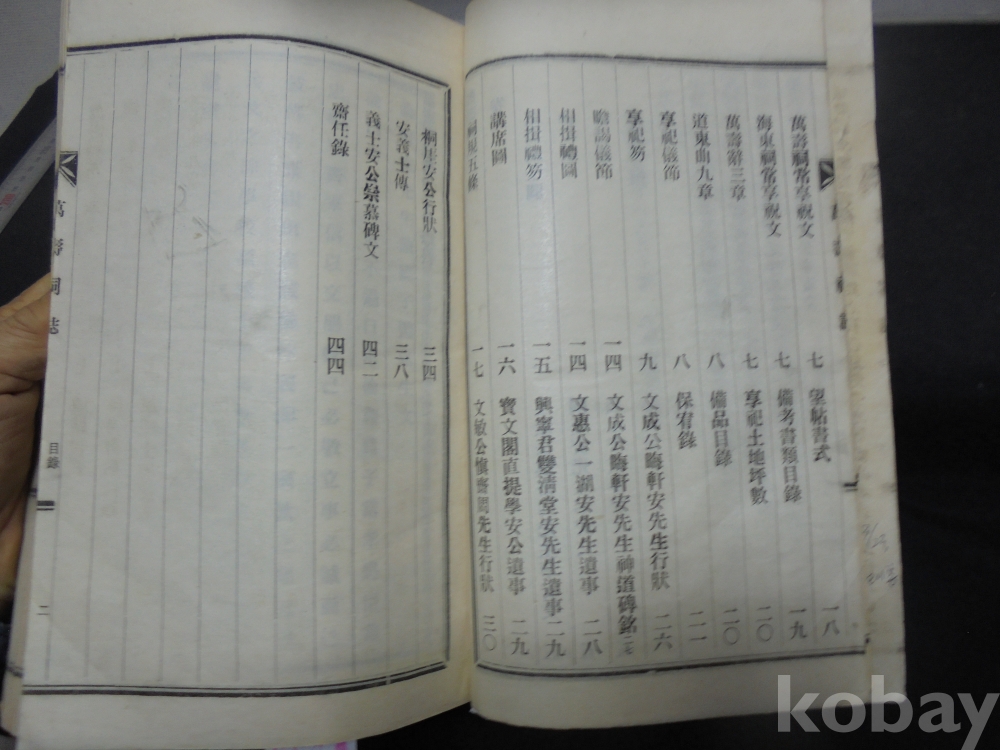 萬壽祠常享祝文 七 望帖書式 一八
海東祠常享祝文 七 備考書類目錄 一九
萬壽辭三章 七 享祀土地坪數 二〇
道東曲九章 八 備品目錄 二〇
享祀儀節 八 保宥錄 二一
享祀笏 九 文成公晦軒安先生行狀 二六
瞻謁儀節 一四 文成公晦軒安先生神道碑銘 二七
相揖禮圖 一四 文惠公一湖安先生遺事 二八
相揖禮笏 一五 興寧君雙淸堂安先生遺事 二九
講席圖 一六 寶文閣直提學安公遺事 二九
祠規五條 一七 文敏公愼齋周先生行狀 三〇
桐厓安公行狀 三四
安義士傳 三八
義士安公崇慕碑文 四二
齋任錄 四四
萬壽祠誌
目錄
二
kobay